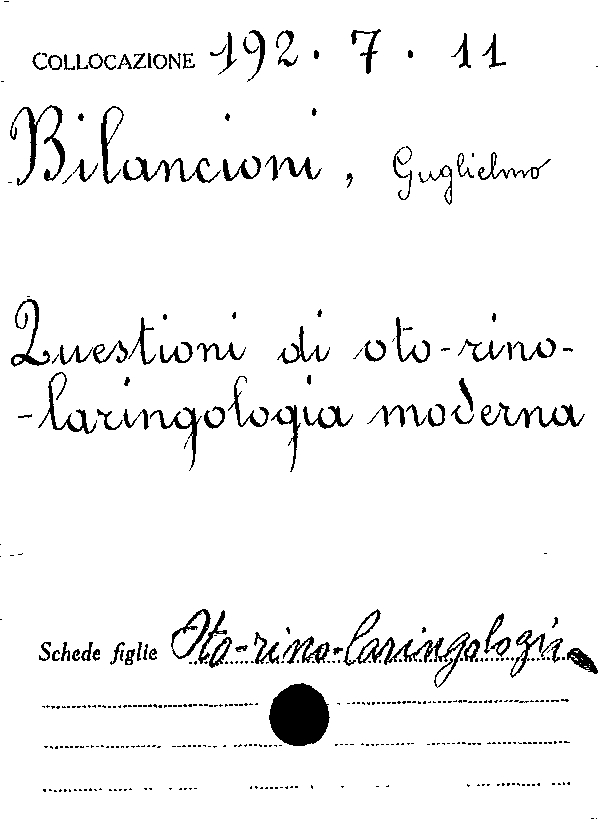 COLLOCAZIONE 192 . 7 . 11
Bilancioni, Guglielmo
Questioni di oto-rino-
-laringologia moderna
Schede figlie Oto-rino-laringologia